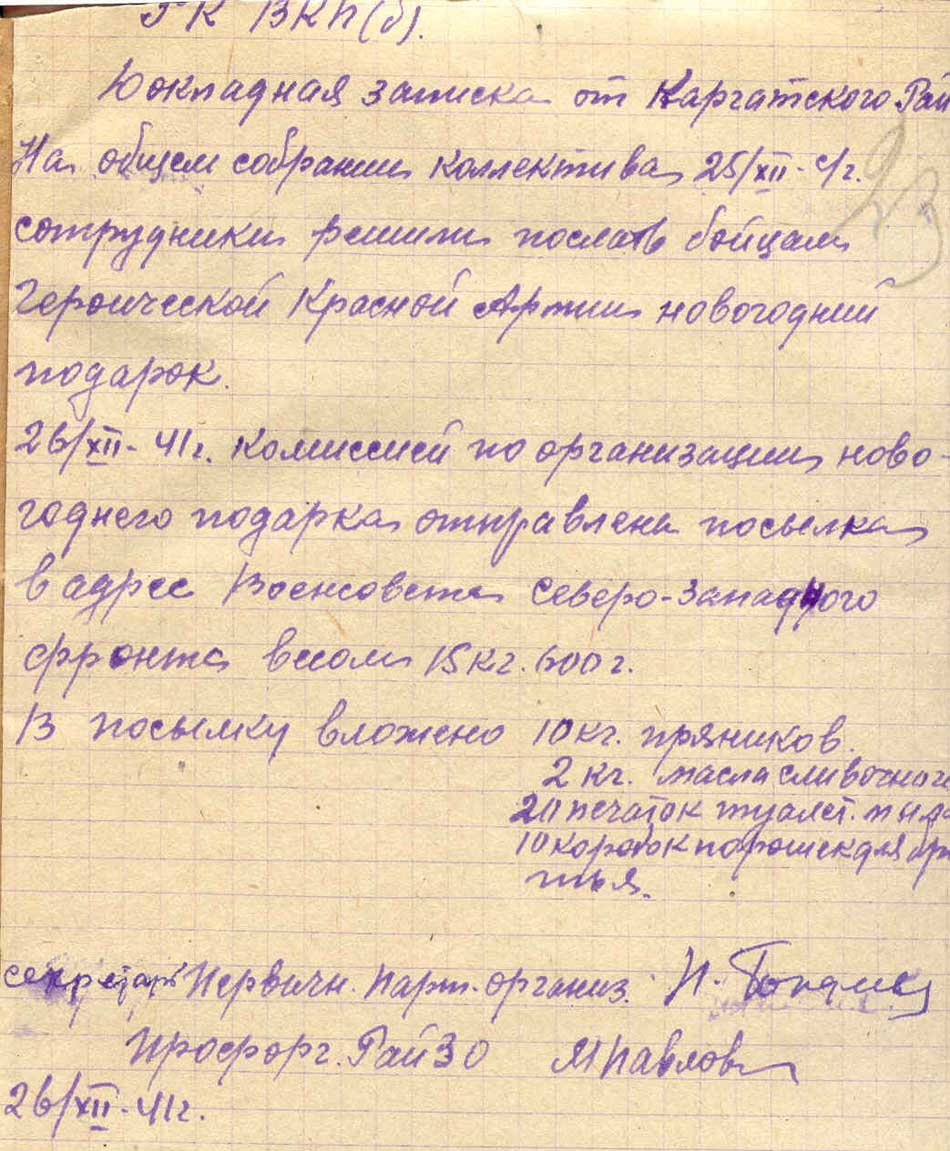 РК ВКП(б).
Докладная записка от Каргатского Рай
На общем собрании коллектива 25/XII-с/г.
сотрудники решили послать бойцам
Героической Красной Армии новогодний
подарок.
26/XII-41г. комиссией по организации ново-
годнего подарка отправлена посылка
в адрес Военсовета Северо-Западного
фронта весом 15кг.600г.
В посылку вложено 10кг. пряников.
2 кг. масла сливочного
20 печаток туалет. мыла
10 коробок порошек для бри
тья.
секретарь Первичн. парт. организ.
Профорг. РайЗО МПавлов
26/XII-41г.
23